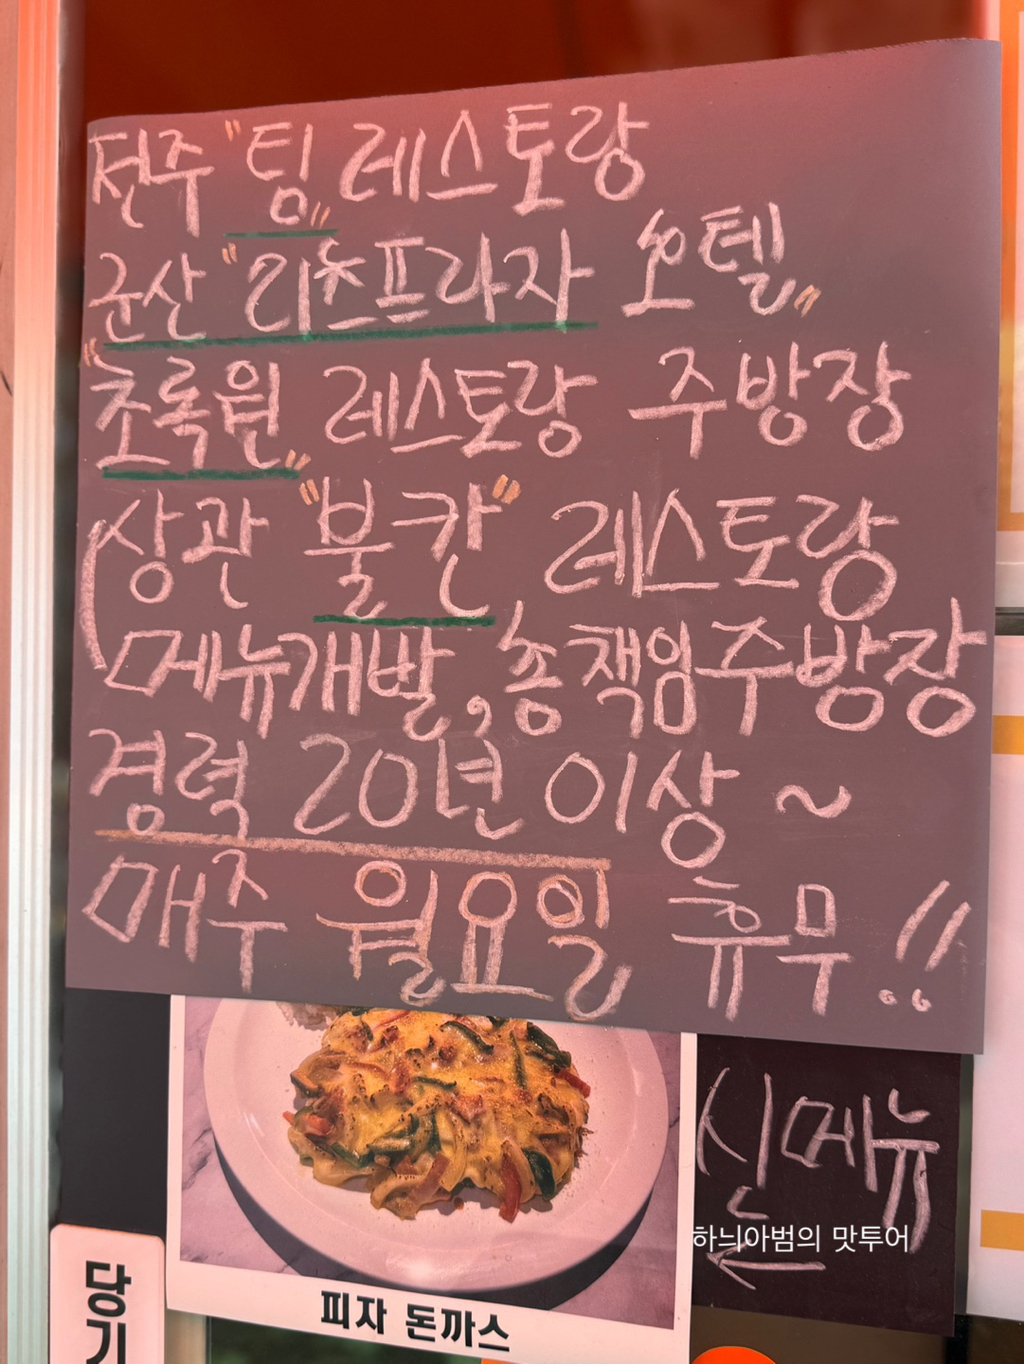 전주 "팀" 레스토랑
군산 "리츠프라자 호텔"
"초록원" 레스토랑 주방장
상관 "불칸" 레스토랑
메뉴개발, 총책임주방장
경력 20년 이상 ~
매주 월요일 휴무 !!
신메뉴
하늬아범의 맛투어
피자 돈까스
당기